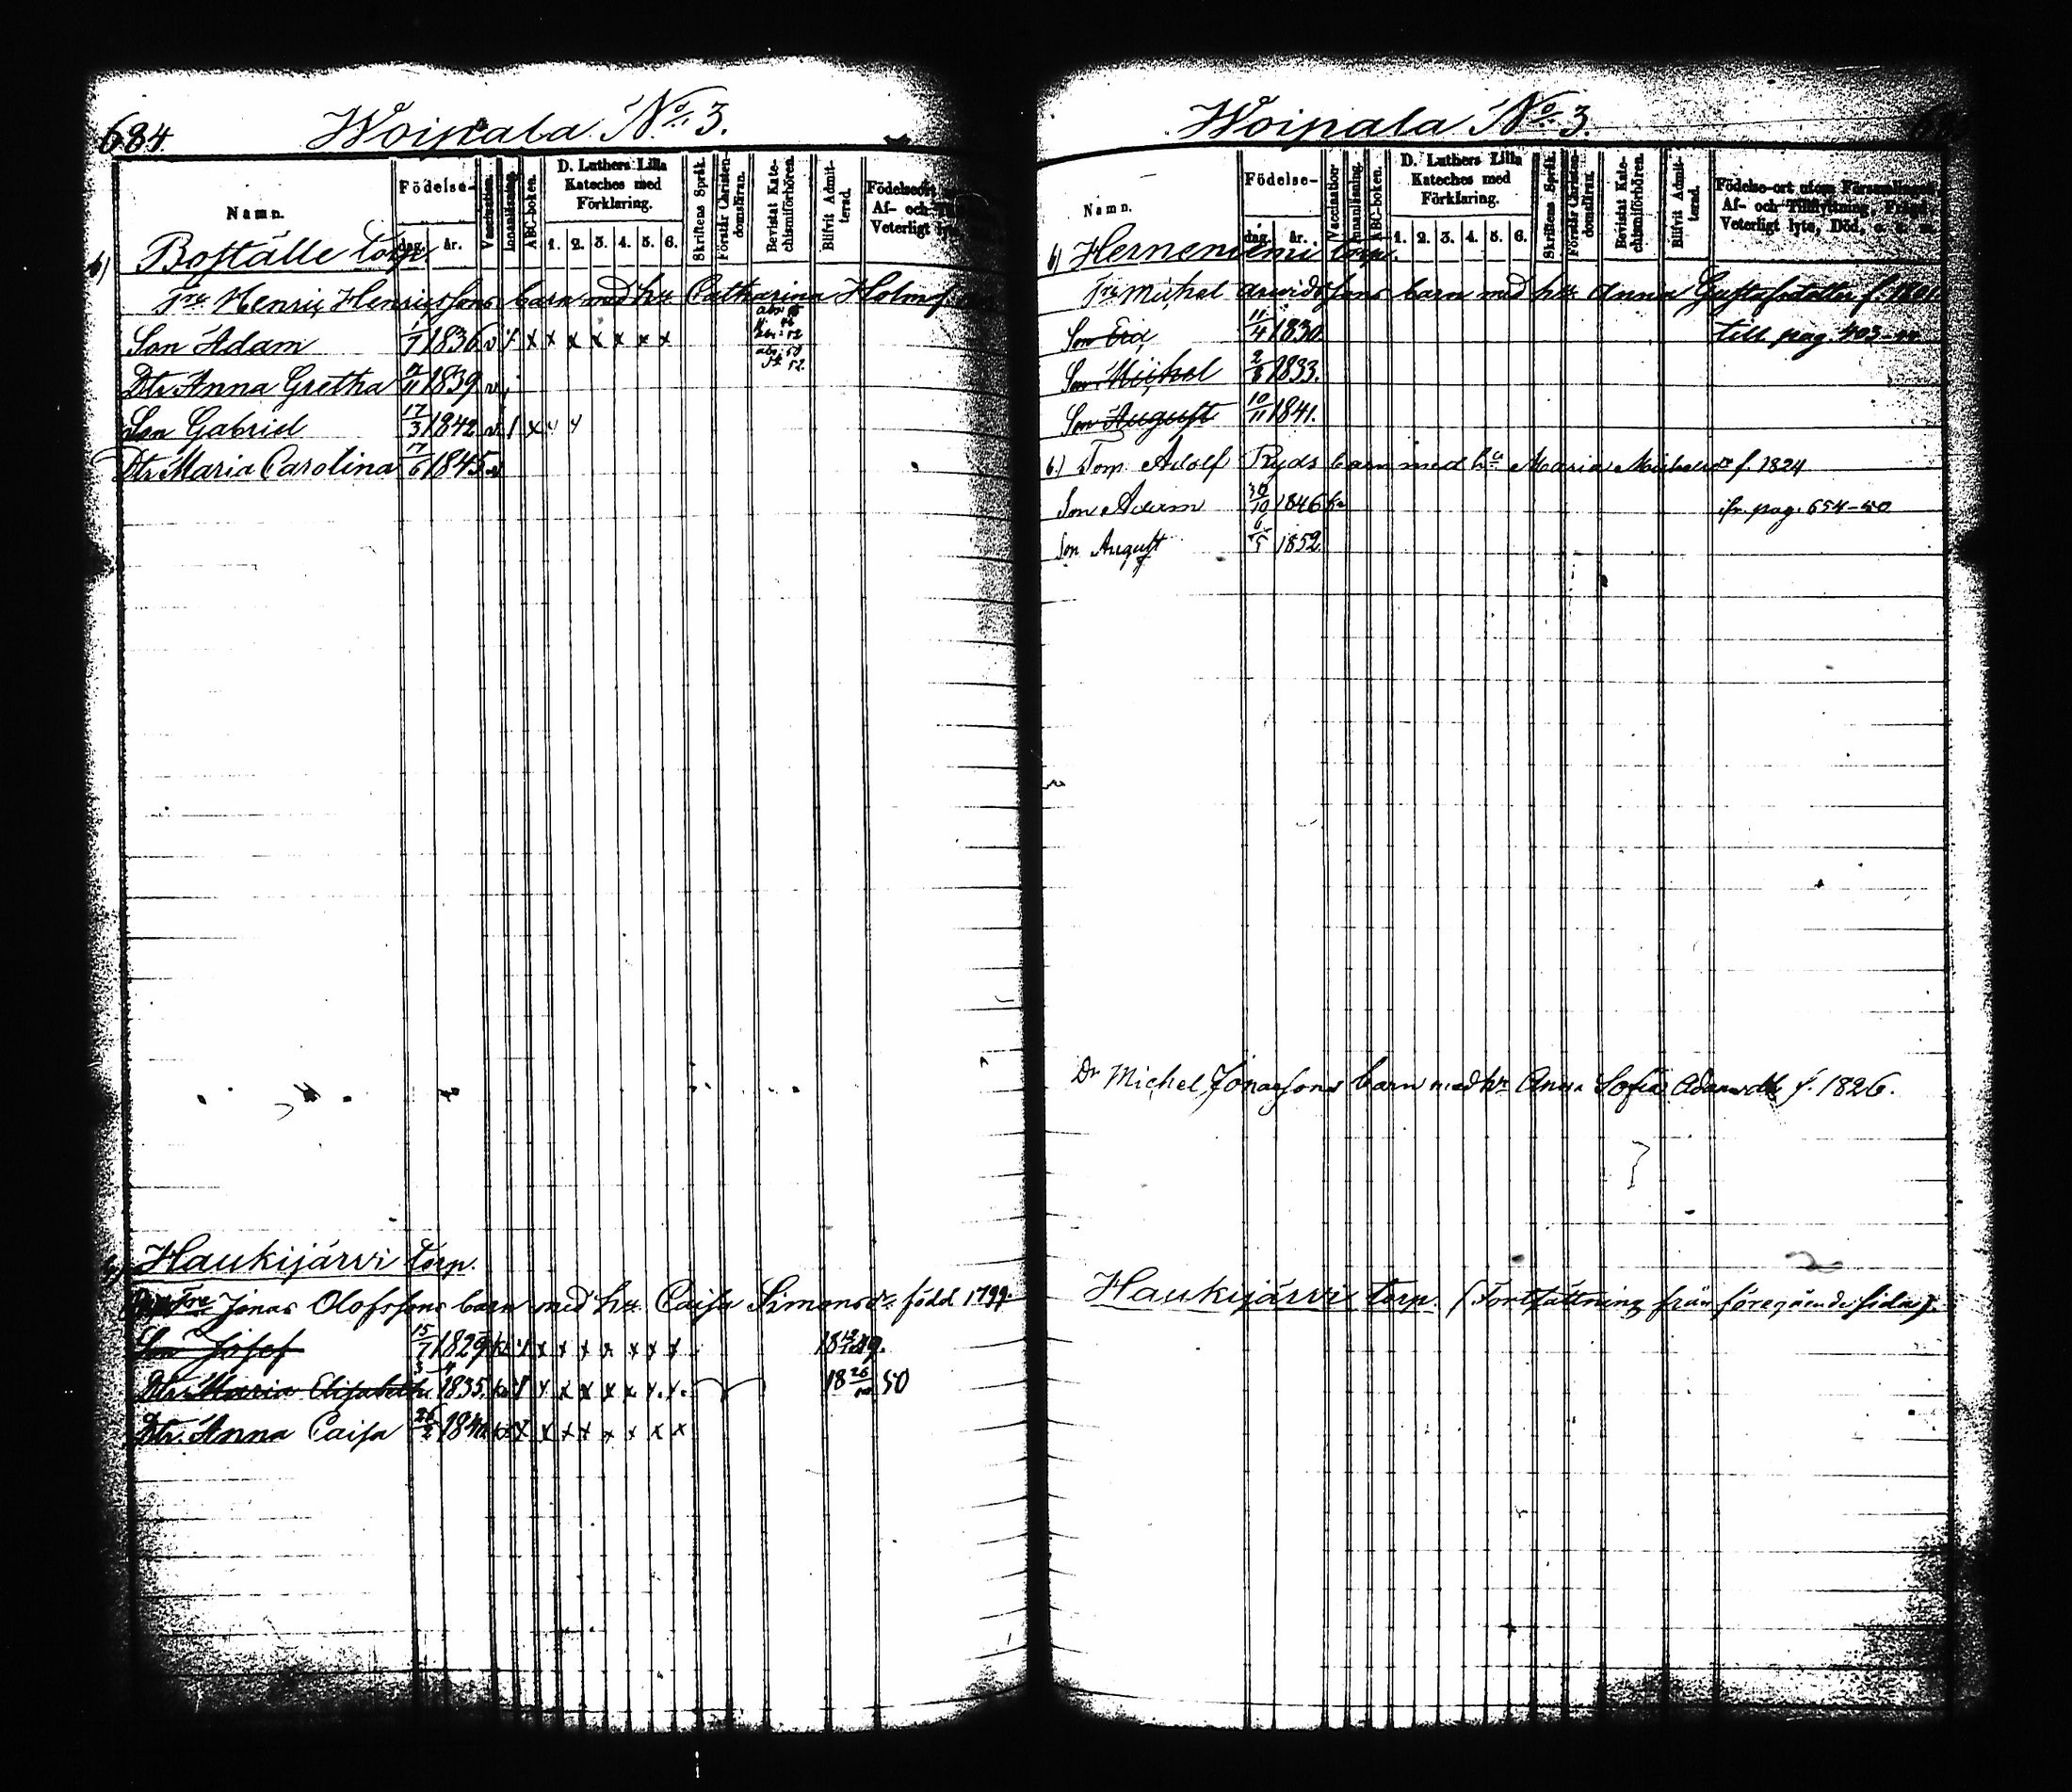 684.
Woipala No 3.
Namn.
Födelse-
dag. år.
Vaccination.
Innanläsning.
ABC-boken.
D. Luthers Lilla Kateches med Förklaring.
1. 2. 3. 4. 5. 6.
Skriftens Språk.
Förstår Christendomsläran.
Bevistat Katechismiförhören.
Blifvit Admitterad.
Födelseort
Af- och
Veterligt lyte
b) Boställe torp.
Tre Henric Henricssons barn med hu Catharina Holm
Son Adam 1/7 1836 v / x x x x x x x
Dtr Anna Gretha 2/11 1839 v
Son Gabriel 17/3 1842 v / x
Dtr Maria Carolina 17/6 1845 v
Haukijärvi torp.
Tre Jonas Olofssons barn med hu Caisa Simonsdr född 1799.
Son Josef 15/7 1829 x x x x x x x 18 49.
Dtr Maria Elisabeth 1835. 18 26 50
Dtr. Anna Caisa 26/2 x x x x x x x
Woipala No 3.
Namn.
Födelse-
dag. år.
Vaccination
Innanläsning.
ABC-boken.
D. Luthers Lilla Kateches med Förklaring.
1. 2. 3. 4. 5. 6.
Skriftens Språk.
Förstår Christendomsläran.
Bevistat Katechismiförhören.
Blifvit Admitterad.
Födelse-ort utom Församlingen,
Af- och Tillflyttning, Frägd
Veterligt lyte, Död, o. s. m.
b) Herneniemi torp.
Tre Michel Arvidssons barn med hu Anna Gustafsdotter f. 1801.
Son Eric 11/4 1830. till pag. 403
Son Michel 1833.
Son August 10/11 1841.
b.) Torp. Adolf Ryds barn med hu Maria Michelsdr f. 1824
Son Adam 30/10 1846 fr. pag. 654-50
Son August 6/5 1852
Dr Michel Jonassons barn med hu Anna Sofia Adamsdtr f. 1826.
Haukijärvi torp. (Fortsättning från föregående sida).